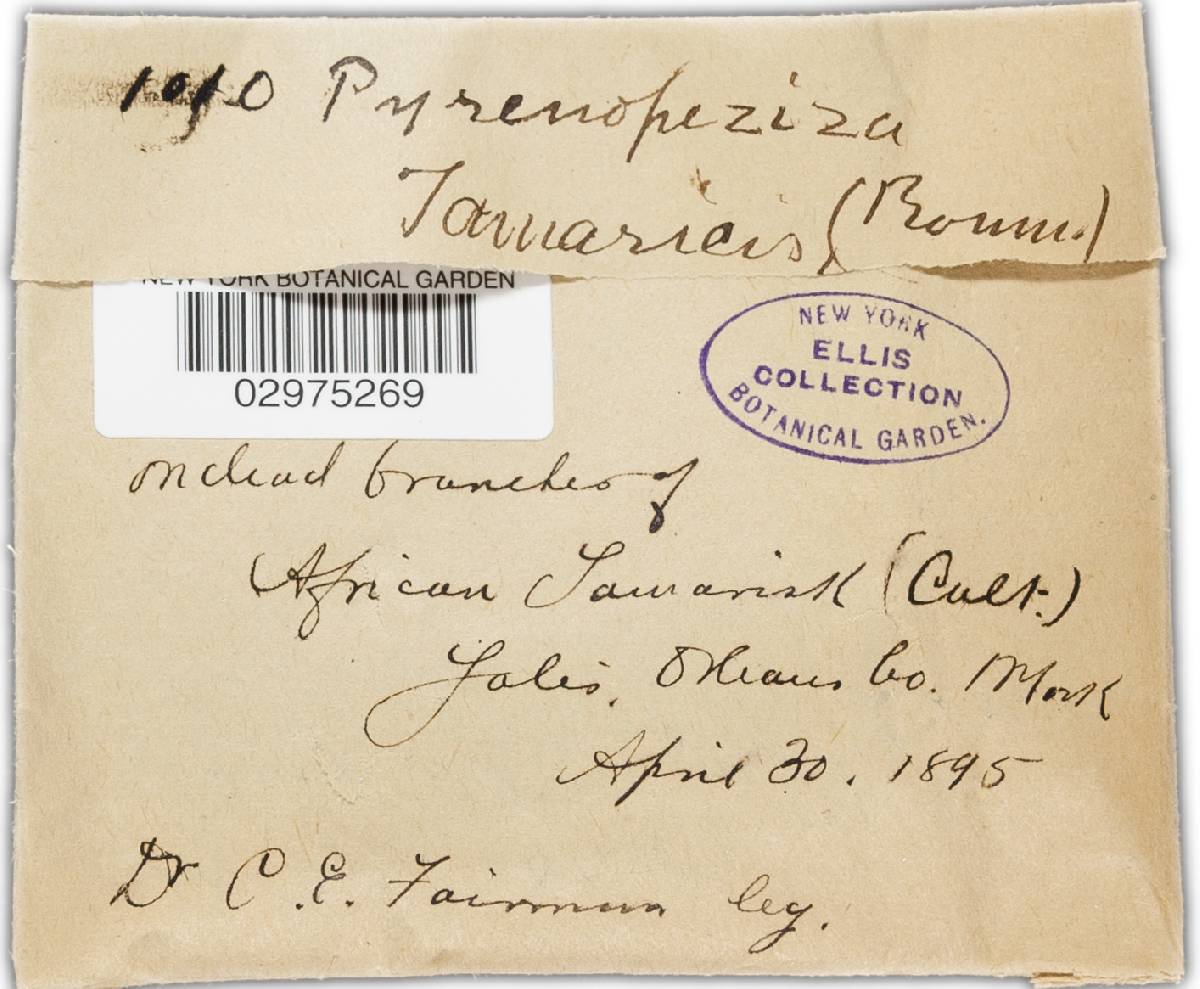 1010 Pyrenopeziza
Tamaricis (Roum.)
NEW YORK BOTANICAL GARDEN
02975269
NEW YORK
ELLIS
COLLECTION
BOTANICAL GARDEN.
on dead branches of
African Tamarisk (Cult.)
Yales, Orleans Co. N York
April 30. 1895
Dr C. E. Fairman leg.